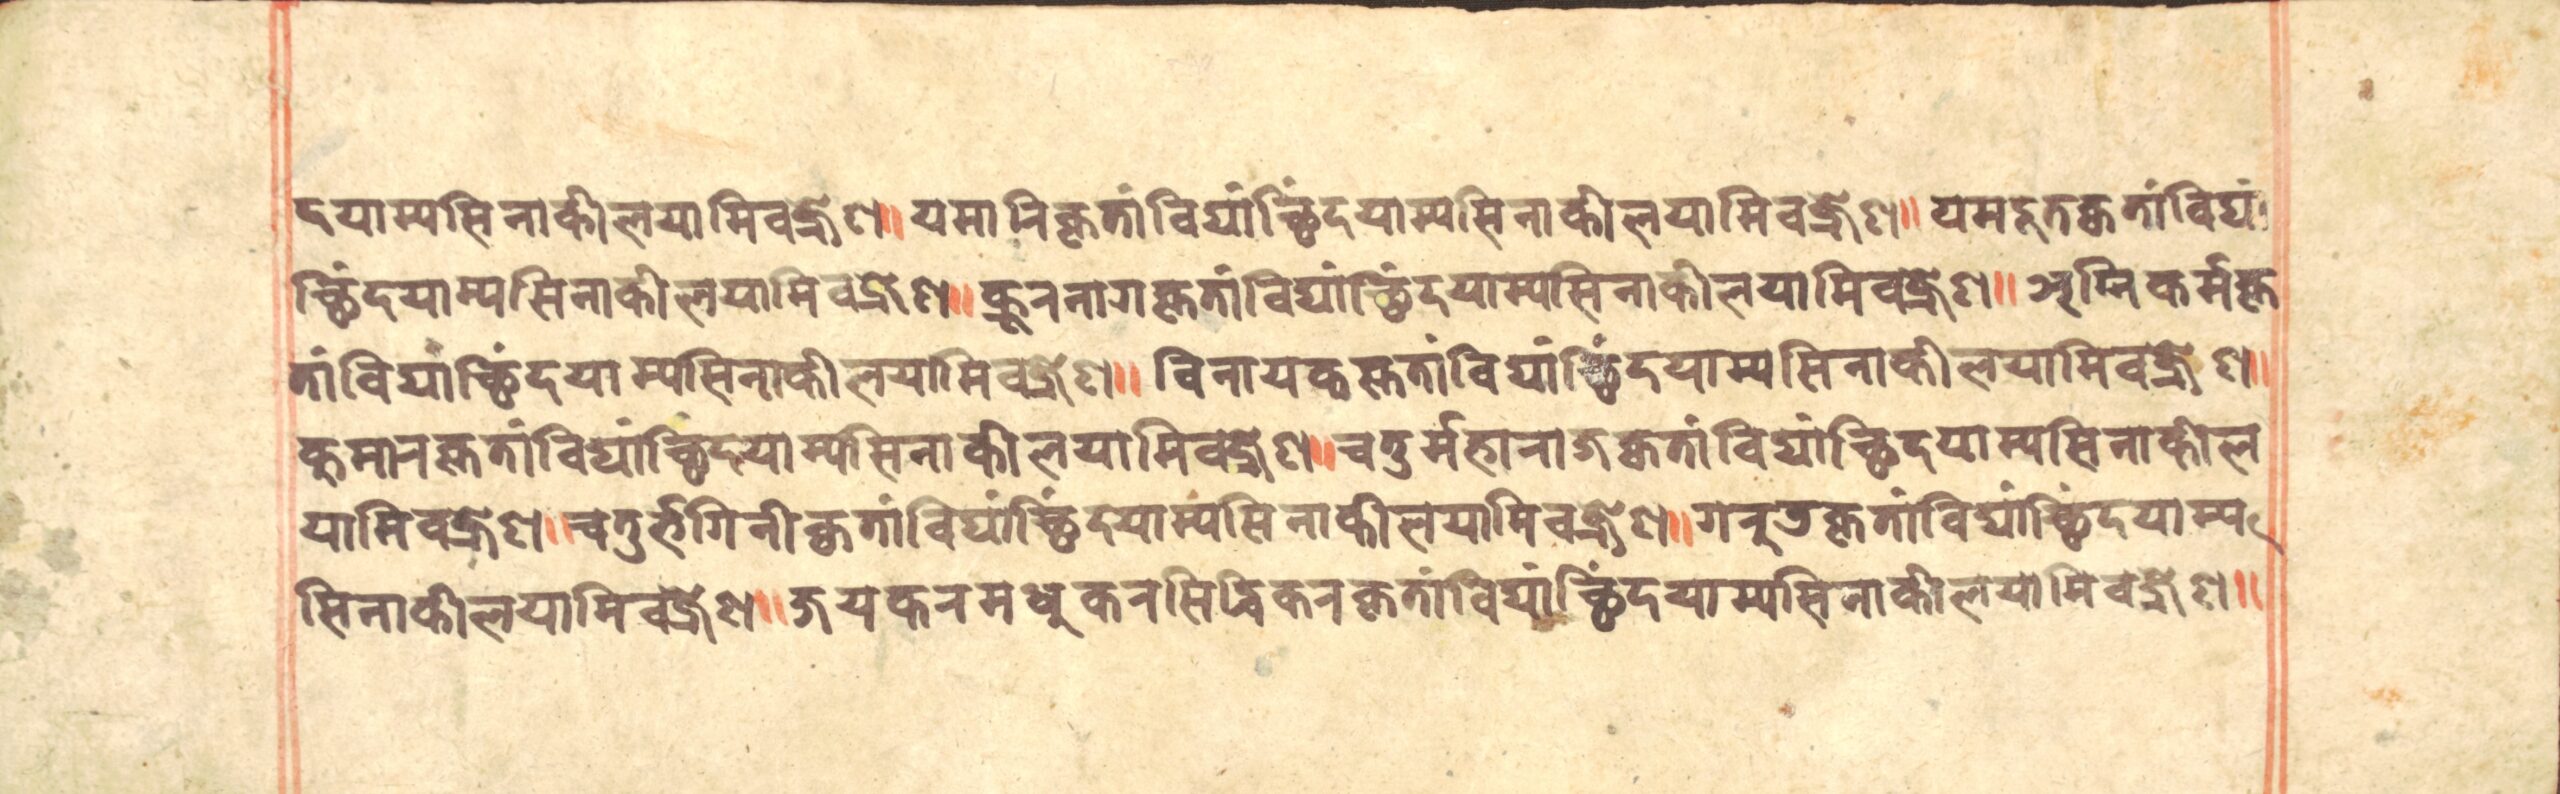 दयाम्यसिनाकीलयामिवज्रेण॥ यमारिकृतांविद्यांच्छिंदयाम्यसिनाकीलयामिवज्रेण॥ यमदूतकृतांविद्यां
च्छिंदयाम्यसिनाकीलयामिवज्रेण॥ क्रूरनागकृतांविद्यांच्छिंदयाम्यसिनाकीलयामिवज्रेण॥ अग्निकर्मकृ
तांविद्यांच्छिंदयाम्यसिनाकीलयामिवज्रेण॥ विनायककृतांविद्यांच्छिंदयाम्यसिनाकीलयामिवज्रेण॥
कुमारकृतांविद्यांच्छिंदयाम्यसिनाकीलयामिवज्रेण॥ चतुर्महाराजकृतांविद्यांच्छिंदयाम्यसिनाकील
यामिवज्रेण॥ चतुर्भगिनीकृतांविद्यांच्छिंदयाम्यसिनाकीलयामिवज्रेण॥ गरुडकृतांविद्यांच्छिंदयाम्य
सिनाकीलयामिवज्रेण॥ जयकरमधुकरसिद्धिकरकृतांविद्यांच्छिंदयाम्यसिनाकीलयामिवज्रेण॥